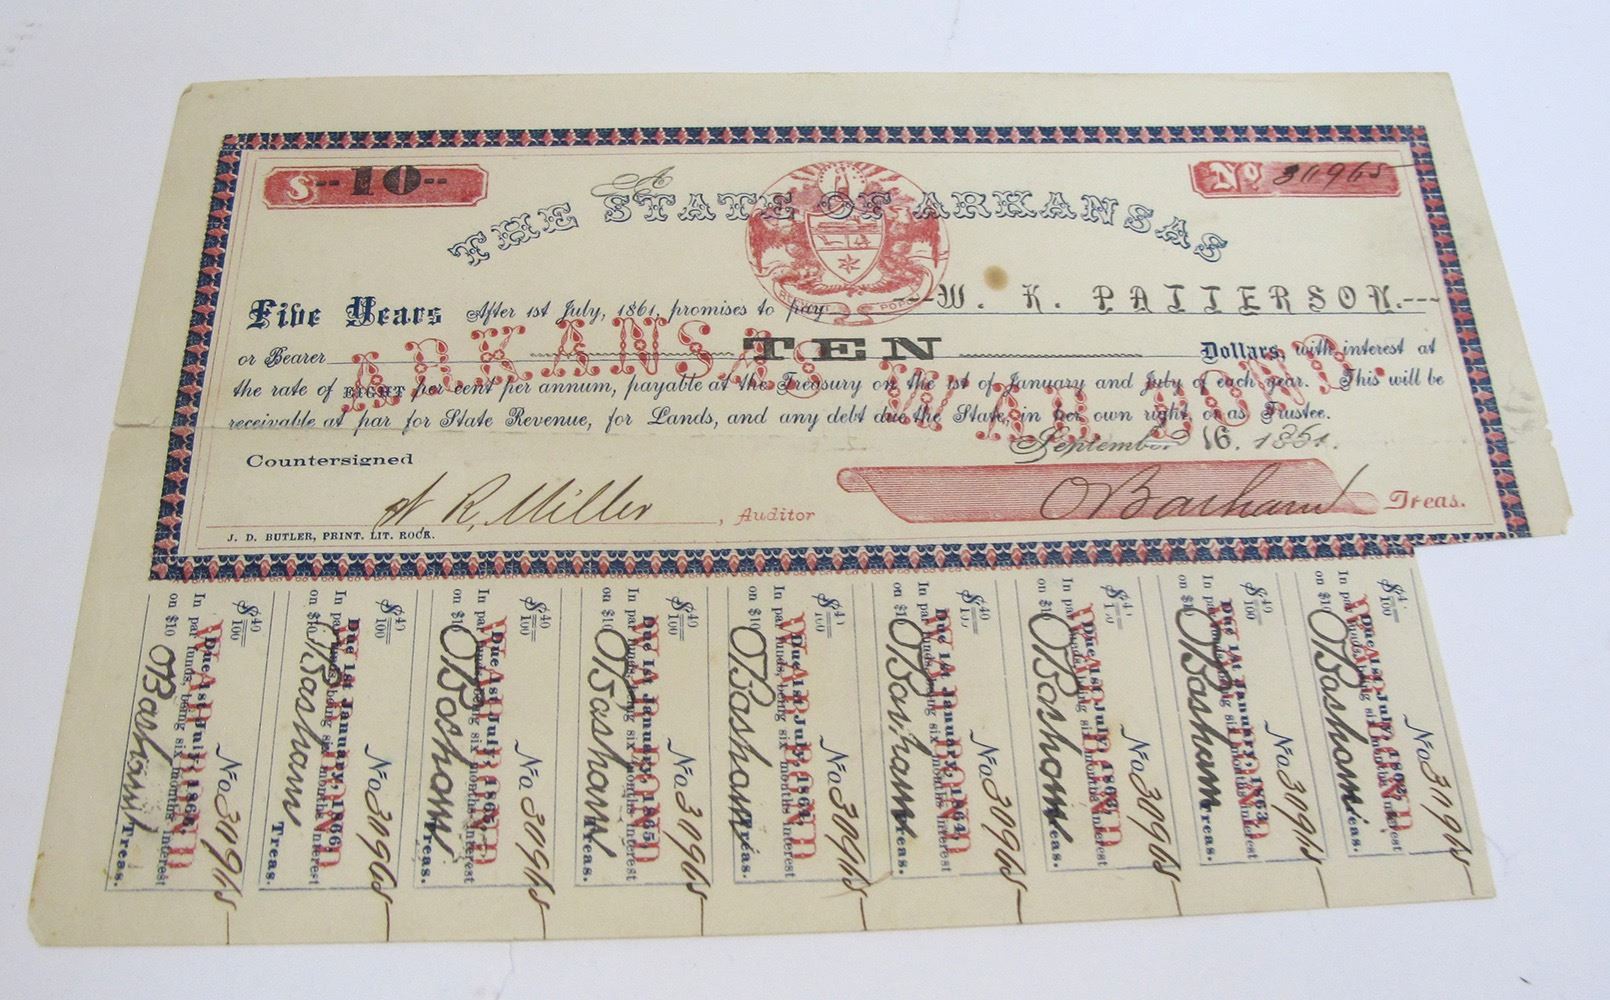 $ --10--
No 30965
THE STATE OF ARKANSAS
Five Years After 1st July, 1861, promises to pay ---W. K. PATTERSON.---
or Bearer TEN Dollars, with interest at
the rate of EIGHT per cent per annum, payable at the Treasury on the 1st of January and July of each year. This will be
receivable at par for State Revenue, for Lands, and any debt due the State, in her own right, or as Trustee.
ARKANSAS WAR BOND.
September 16. 1861.
Countersigned
W. R. Miller, Auditor
O Basham Treas.
J. D. BUTLER, PRINT. LIT. ROCK.
$ 40/100 No 30965
Due 1st July, 1866,
In par funds, being six months interest
on $10 O Basham Treas.
WAR BOND
$ 40/100 No 30965
Due 1st January, 1866,
In par funds, being six months interest
on $10 O Basham Treas.
WAR BOND
$ 40/100 No 30965
Due 1st July, 1865,
In par funds, being six months interest
on $10 O Basham Treas.
WAR BOND
$ 40/100 No 30965
Due 1st January, 1865,
In par funds, being six months interest
on $10 O Basham Treas.
WAR BOND
$ 40/100 No 30965
Due 1st July, 1864,
In par funds, being six months interest
on $10 O Basham Treas.
WAR BOND
$ 40/100 No 30965
Due 1st January, 1864,
In par funds, being six months interest
on $10 O Basham Treas.
WAR BOND
$ 40/100 No 30965
Due 1st July, 1863,
In par funds, being six months interest
on $10 O Basham Treas.
WAR BOND
$ 40/100 No 30965
Due 1st January, 1863,
In par funds, being six months interest
on $10 O Basham Treas.
WAR BOND
$ 40/100 No 30965
Due 1st July, 1862,
In par funds, being six months interest
on $10 O Basham Treas.
WAR BOND